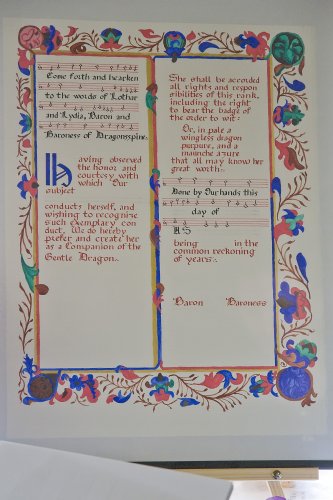 Come forth and hearken
to the words of Lothar
and Lydia, Baron and
Baroness of Dragonsspine.
Having observed
the honor and
courtesy with
which Our
subject
conducts herself, and
wishing to recognize
such exemplary con
duct, We do hereby
prefer and create her
as a Companion of the
Gentle Dragon.
She shall be accorded
all rights and respon
sibilities of this rank,
including the right
to bear the badge of
the order to wit:
Or, in pale a
wingless dragon
purpure, and a
maunche azure
that all may know her
great worth.
Done by Our hands this
day of
A.S.
being in the
common reckoning
of years.
Baron Baroness